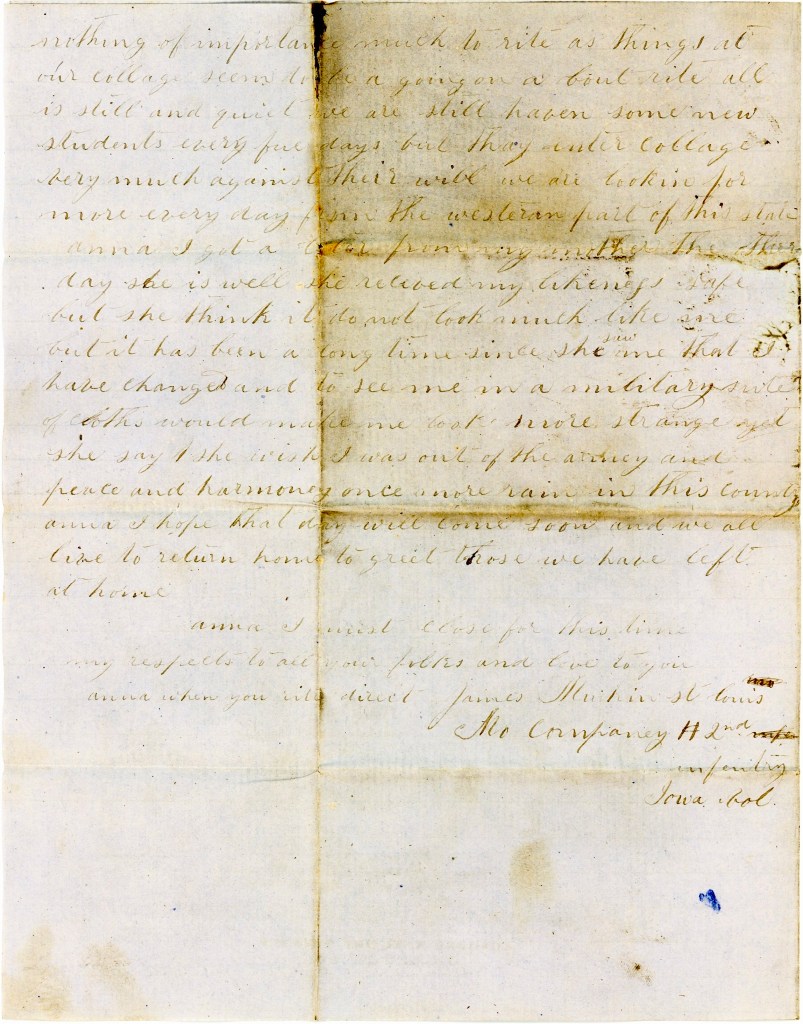 nothing of importance much to rite as things at
our collage seems to be a going on a bout rite all
is still and quiet we are still haven some new
students every fue days but thay enter collage
very much against their will we are lookin for
more every day from the westeran part of this state
anna I got a letter from my mother the other
day she is well she recieved my likeness safe
but she think it do not look much like me
but it has been a long time since she saw me that I
have changed and to see me in a military sute
of cloths would make me look more strange yet
she say s she wish I was out of the armey and
peace and harmoney once more rain in this county
anna I hope that day will come soon and we all
live to return home to greet those we have left
at home
anna I must close for this time
my respects to all your folks and love to you
anna when you rite direct James St Louis
Mo Companey H 2nd
infentry
Iowa Vol.